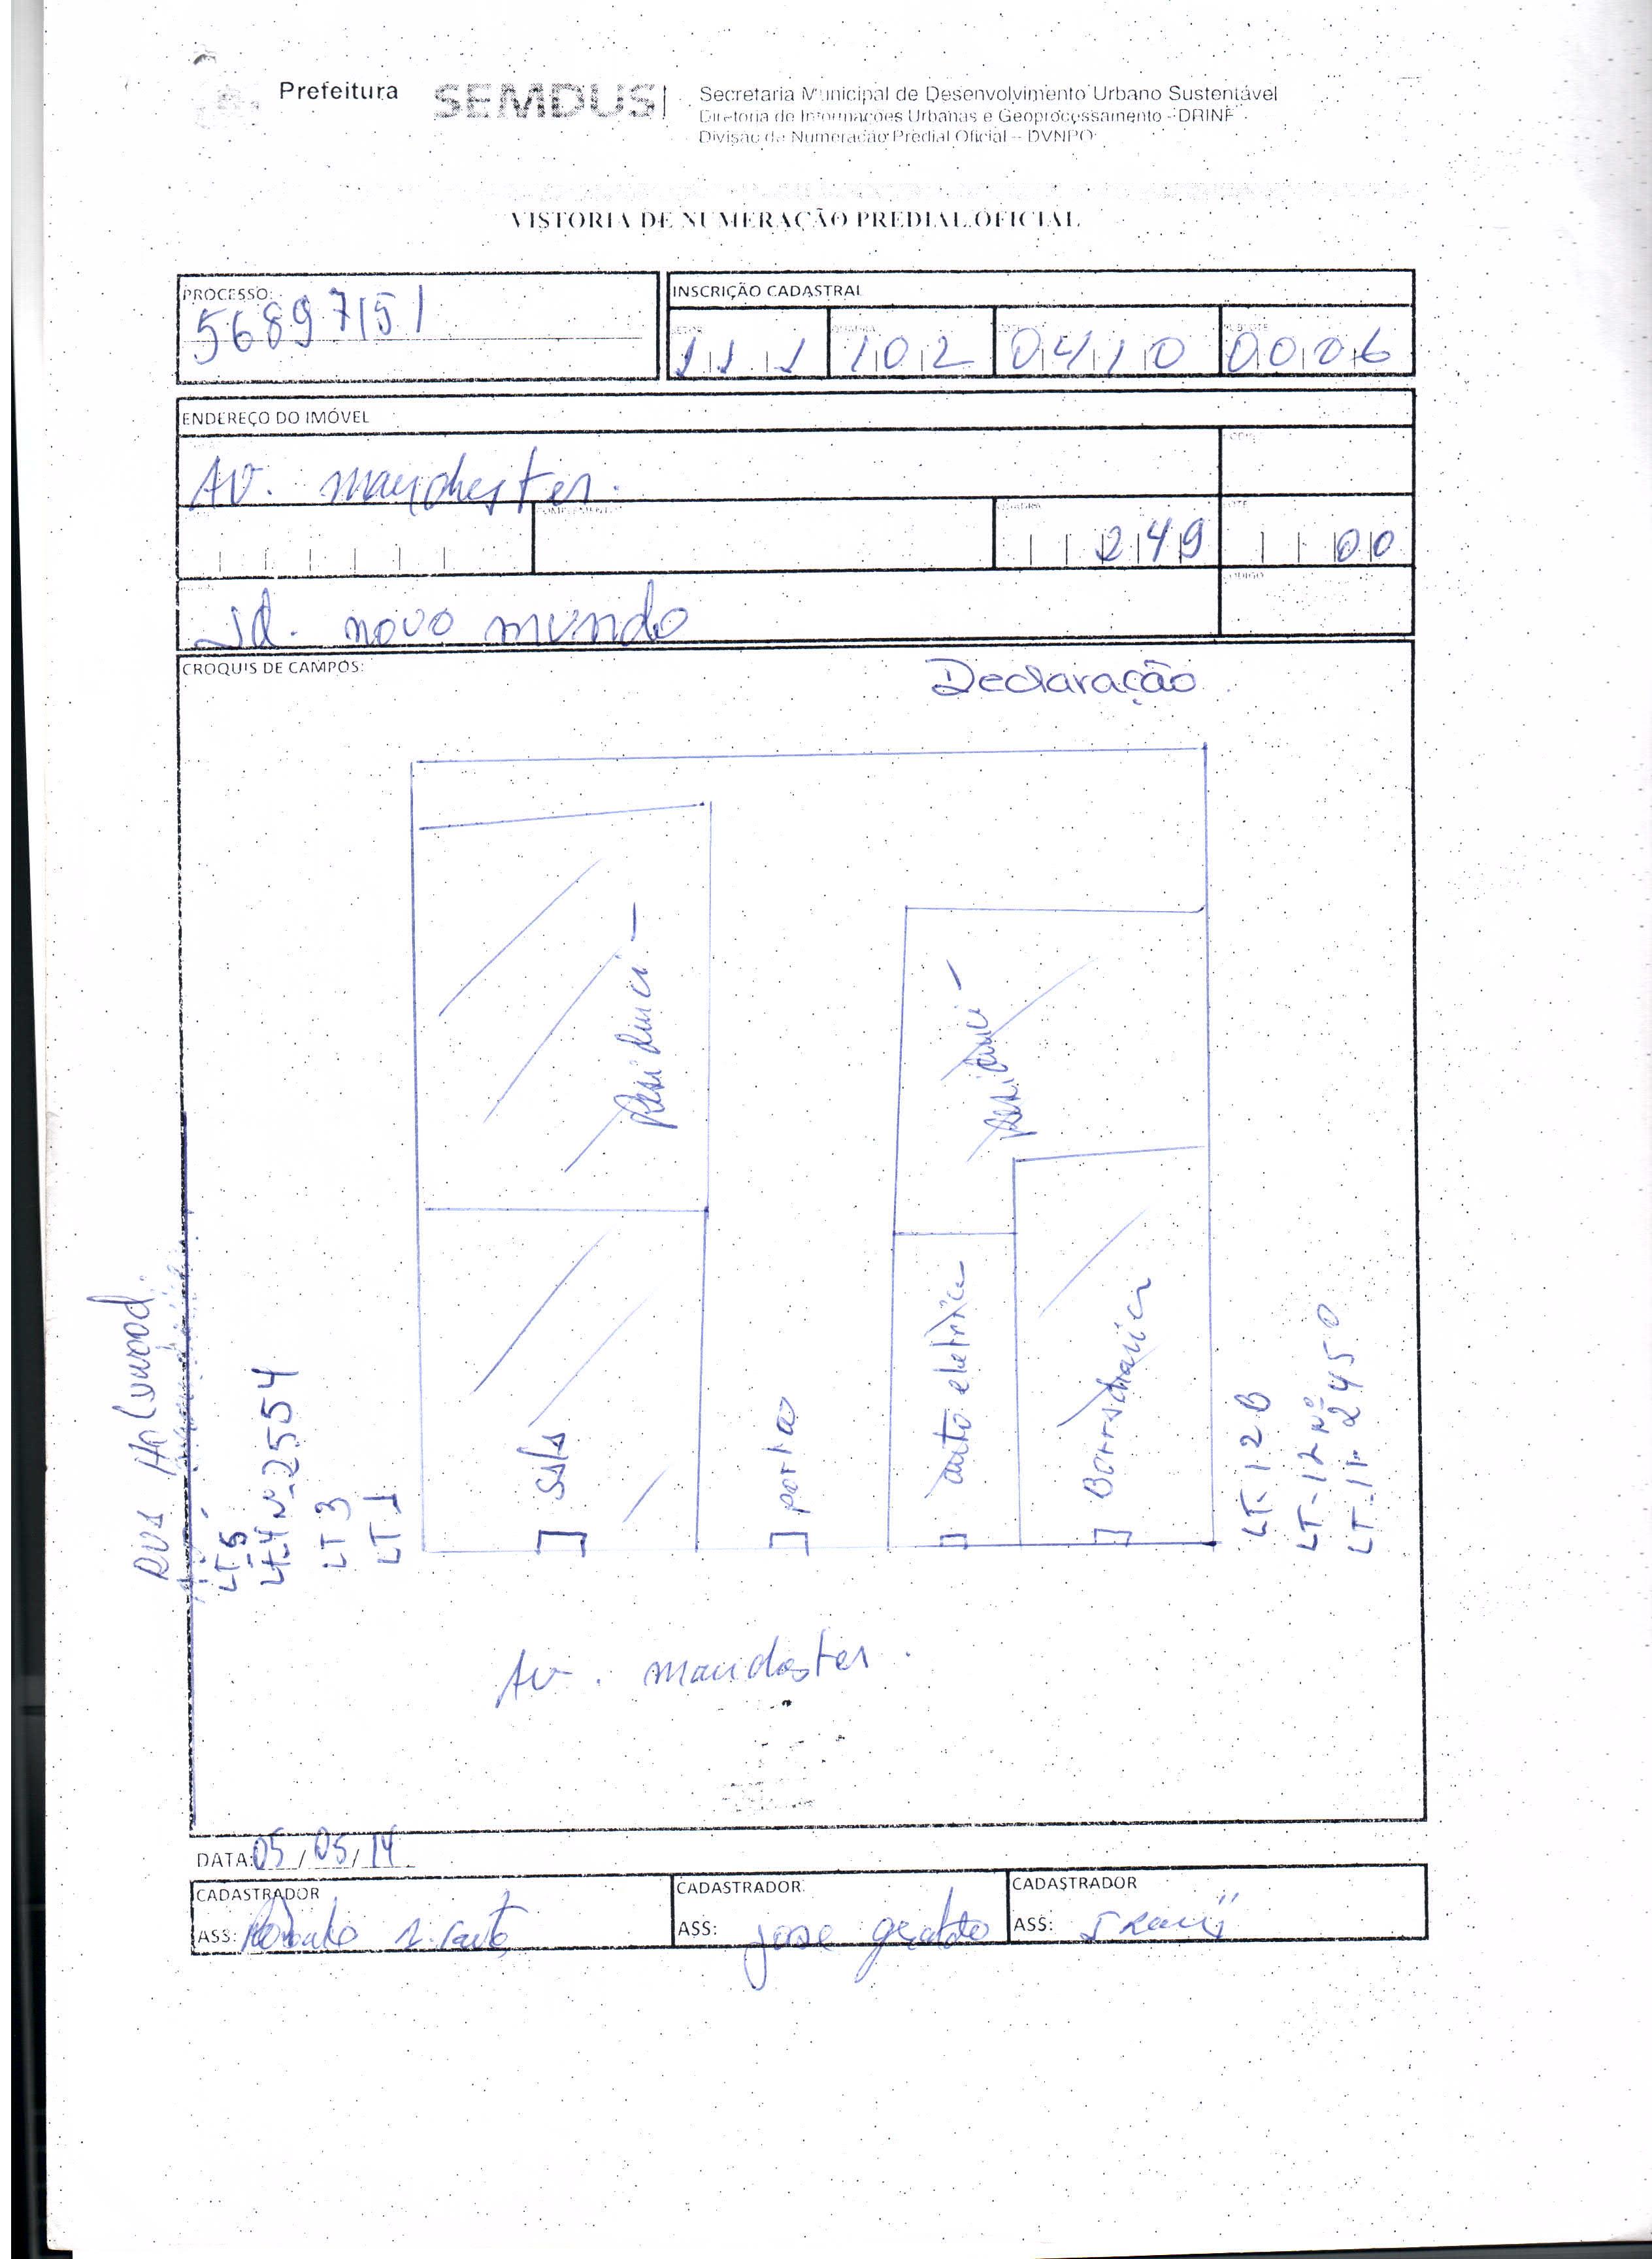 Prefeitura
SEMDUS
Secretaria Municipal de Desenvolvimento Urbano Sustentável
Diretoria de Informações Urbanas e Geoprocessamento - DRINF
Divisão de Numeração Predial Oficial – DVNPO
VISTORIA DE NUMERAÇÃO PREDIAL OFICIAL
PROCESSO:
56897151
INSCRIÇÃO CADASTRAL
111 102 0410 0006
ENDEREÇO DO IMÓVEL
AV. manchester.
249 00
Jd. novo mundo
CROQUIS DE CAMPOS:
Declaração
Residenci
Residenci
sala
porta
auto eletrica
Borracharia
Rua Holywood.
LT 5
LT-4 Nº-2554
LT 3
LT 1
LT-12B
LT-12 Nº
LT-11- 2450
Av. manchester.
DATA: 05/05/14
CADASTRADOR
ASS:
CADASTRADOR:
ASS: jose geraldo
CADASTRADOR
ASS: